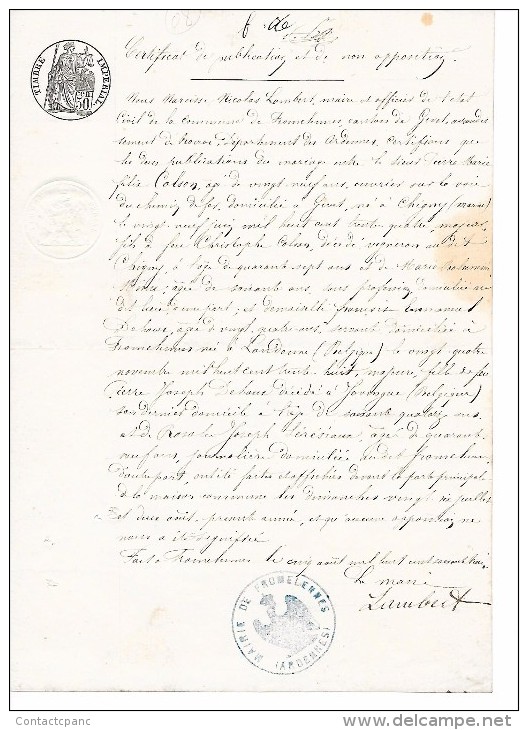 TIMBRE IMPERIAL
50c
Certificat de publication et de non opposition
Nous Narcisse Nicolas Lambert, maire et officier de l'état
Civil de la commune de Fromelennes, canton de Givet, arrondis
sement de Rocroi, Département des Ardennes, certifions que
les deux publications du mariage entre le sieur Pierre Marie
Colson, agé de vingt neuf ans, ouvrier sur la voie
du chemin de fer, domicilié à Givet, né à Chigny (marne)
le vingt neuf juin mil huit cent trente quatre, majeur,
fils de feu Christophe Colson, décédé vigneron au dit
Chigny, à l'âge de quarante sept ans et de Marie
agée de soixante ans, sans profession, domiciliée au
dit lieu, d'une part; et demoiselle
Dehoux, agée de vingt quatre ans, servante domiciliée à
Fromelennes née à Landenne (Belgique) le vingt quatre
novembre mil huit cent trente huit, majeure, fille de feu
Pierre Joseph Dehoux décédé à (Belgique)
son dernier domicile à l'âge de soixante quatorze ans,
et de Rosalie Joseph agée de quarante
neuf ans, journalière domiciliée au dit Fromelennes
d'autre part, ont été faites et affichées devant la porte principale
de la maison commune les dimanches vingt six juillet
et deux août, présente année, et qu'aucune opposition ne
nous a été signifiée
Fait à Fromelennes le cinq août mil huit cent soixante trois,
Le maire
Lambert
MAIRIE DE FROMELENNES
(ARDENNES)
Contactcpanc
delcampe.net